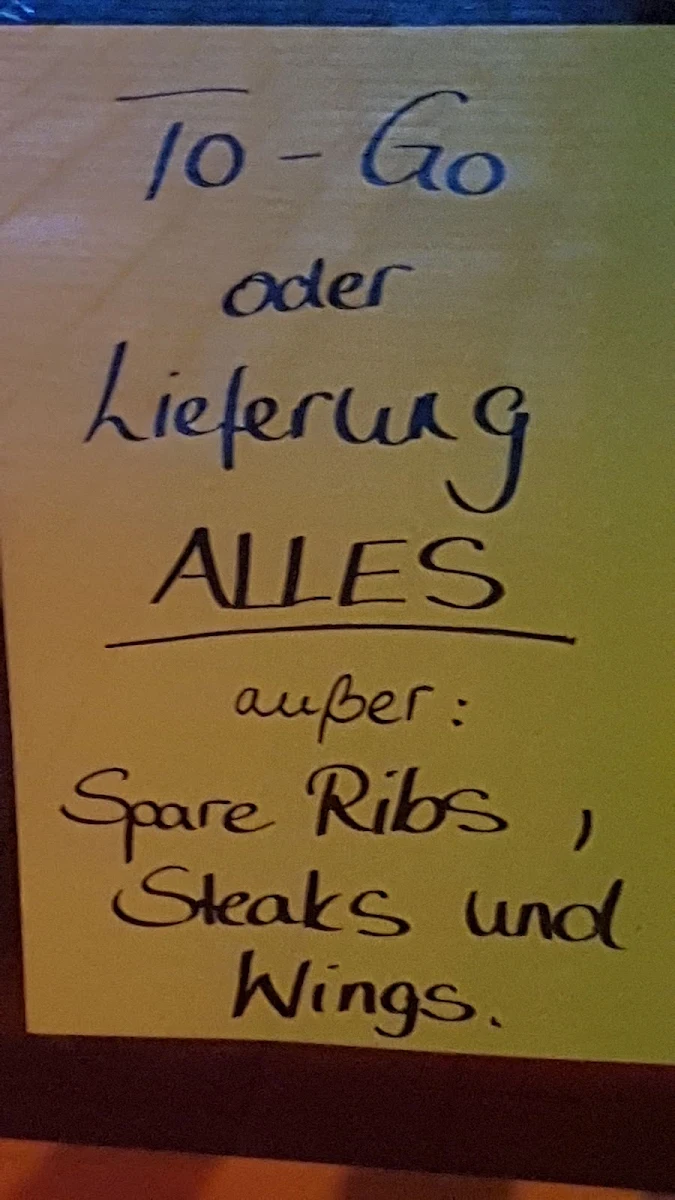 To - Go
oder
Lieferung
ALLES
außer:
Spare Ribs,
Steaks und
Wings.